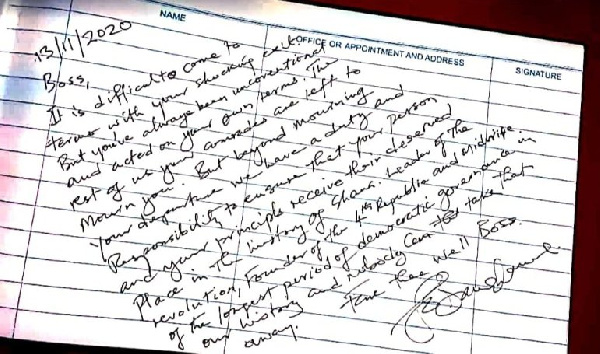 NAME
OFFICE OR APPOINTMENT AND ADDRESS
SIGNATURE
13/11/2020
Boss,
It is difficult to come to
terms with your shocking exit.
But you've always been unconventional
and acted on your own terms. The
rest of us your comrades are left to
Mourn you. But beyond mourning
your departure we have a duty and
Responsibility to ensure that your person
and your principle receive their deserved
place in the history of Ghana. Leader of the
revolution, Founder of the 4th Republic and Midwife
of the longest period of democratic governance in
our history and nobody can take that
away.
Fare thee well Boss.